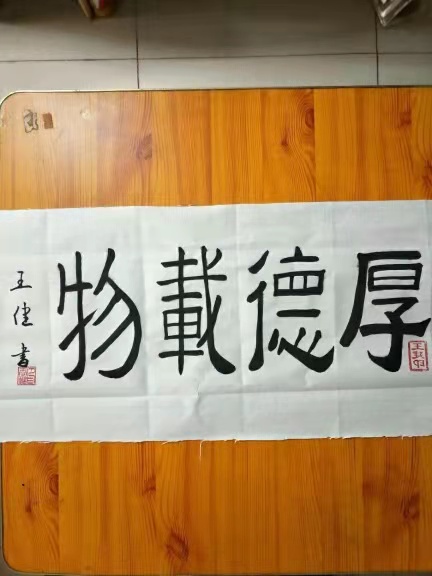 厚德載物
王健書